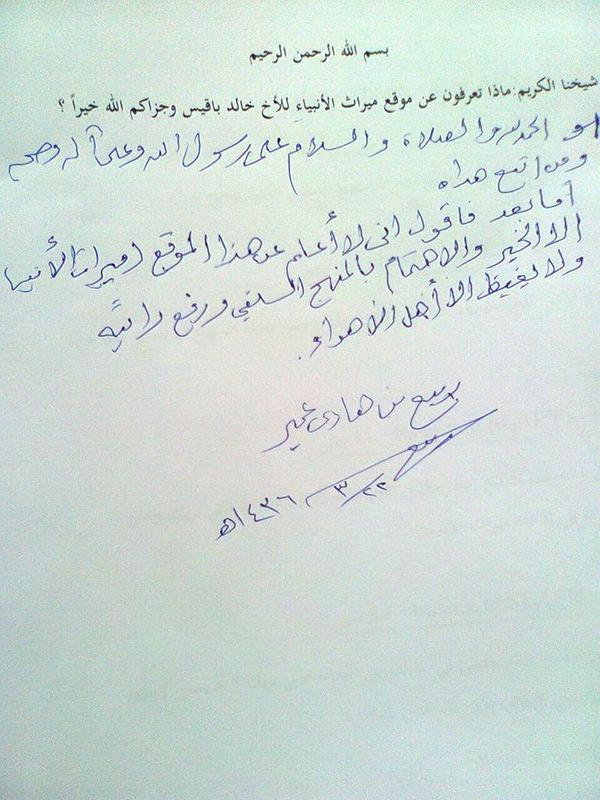 بسم الله الرحمن الرحيم
شيخنا الكريم:ماذا تعرفون عن موقع ميراث الأنبياء للأخ خالد باقيس وجزاكم الله خيراً ؟
الحمد لله والصلاة والسلام على رسول الله وعلى آله وصحبه
ومن اتبع هداه
أما بعد فأقول انى لا أعلم عن هذا الموقع (ميراث الأنبياء
الا الخير والاهتمام بالمنهج السلفي ورفع رايته
ولا يغيظ الا أهل الأهواء.
ربيع بن هادى عمير
٢٢/٣/١٤٣٦هـ